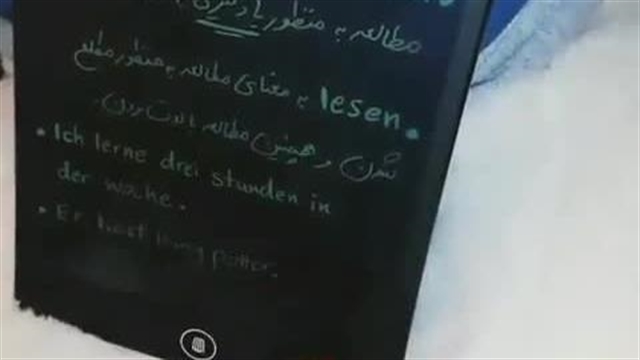 مطالعه به منظور یادگیری
• lesen به معنای مطالعه به منظور مطلع
شدن و همچنین مطالعه با لذت بردن.
• Ich lerne drei stunden in
der woche.
• Er liest